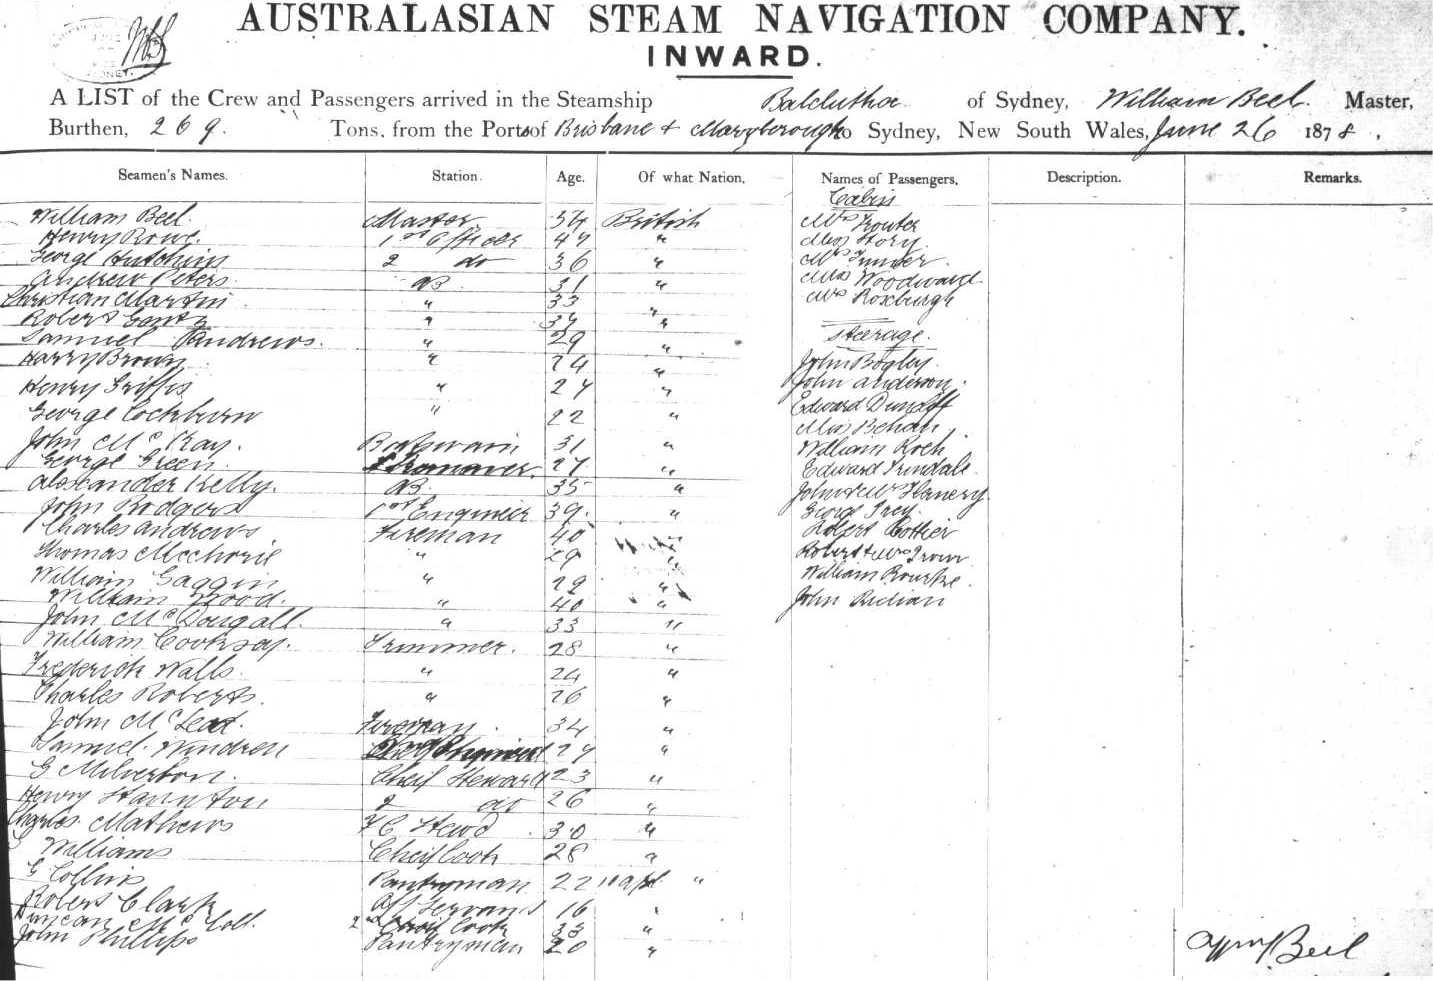 AUSTRALASIAN STEAM NAVIGATION COMPANY.
INWARD.
A LIST of the Crew and Passengers arrived in the Steamship Balclutha of Sydney, William Beel. Master,
Burthen, 269. Tons, from the Ports of Brisbane & Maryborough to Sydney, New South Wales, June 26 1878.
Seamen's Names. Station. Age. Of what Nation. Names of Passengers. Description. Remarks.
Cabin
William Beel Master 34 British Mrs Trouter
Henry Rowe. 1st Officer 47 " Miss Story.
George Hutchins 2 do 36 " Mrs
Andrew Peters AB 31 " Miss Woodward
Christian Martin " 33 " Mrs Roxburgh
Robert " 34 "
Samuel Andrews. " 29 " Steerage.
Harry Brown " 24 " John Bogley
Henry Griffis " 27 " John Anderson.
George Cockburn " 22 " Edward
Miss Behan
John McKay. Boatswain 31 " William Roch
George Green. 27 " Edward Trindale
Alexander Kelly. AB. 35 " John & Mrs Flanery
John Rodgers 1st Engineer 39. " George Frey
Charles Andrews Fireman 40 " Robert Cottier
Thomas " 29 " Robert & Mrs
William Gaggin " 29 " William Rourke.
William Wood. " 40 " John
John McDougall. " 33 "
William Cooksey. Trimmer. 28 "
Frederick Walls. " 24 "
Charles Roberts. " 26 "
John McLeod. Fireman 34 "
Samuel Windren Engineer 27 "
G Milverton. Cheif Steward 23 "
Henry Staunton 2 do 26 "
Charles Mathews F C Stewd. 30 "
Williams Cheif Cook 28 "
G Collins Pantryman 22 "
Robert Clark Off Servant 16 "
Duncan McColl. 2nd Cook 33 "
John Phillips Pantryman 20 "
Beel